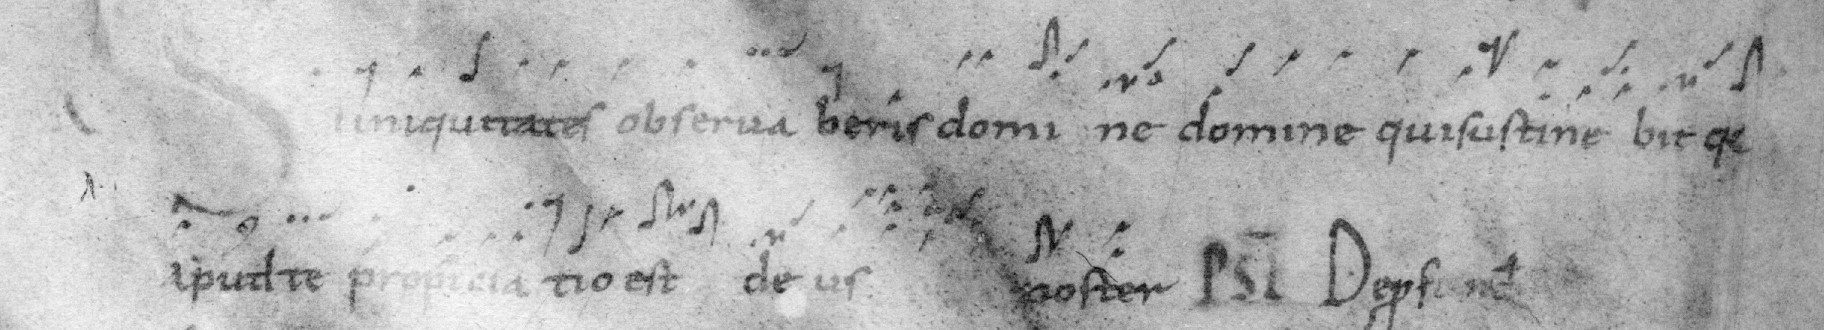 Siniquitates observa beris domi ne domine quisustine bit q
apud te propicia tio est de us noster PSL Depfundis